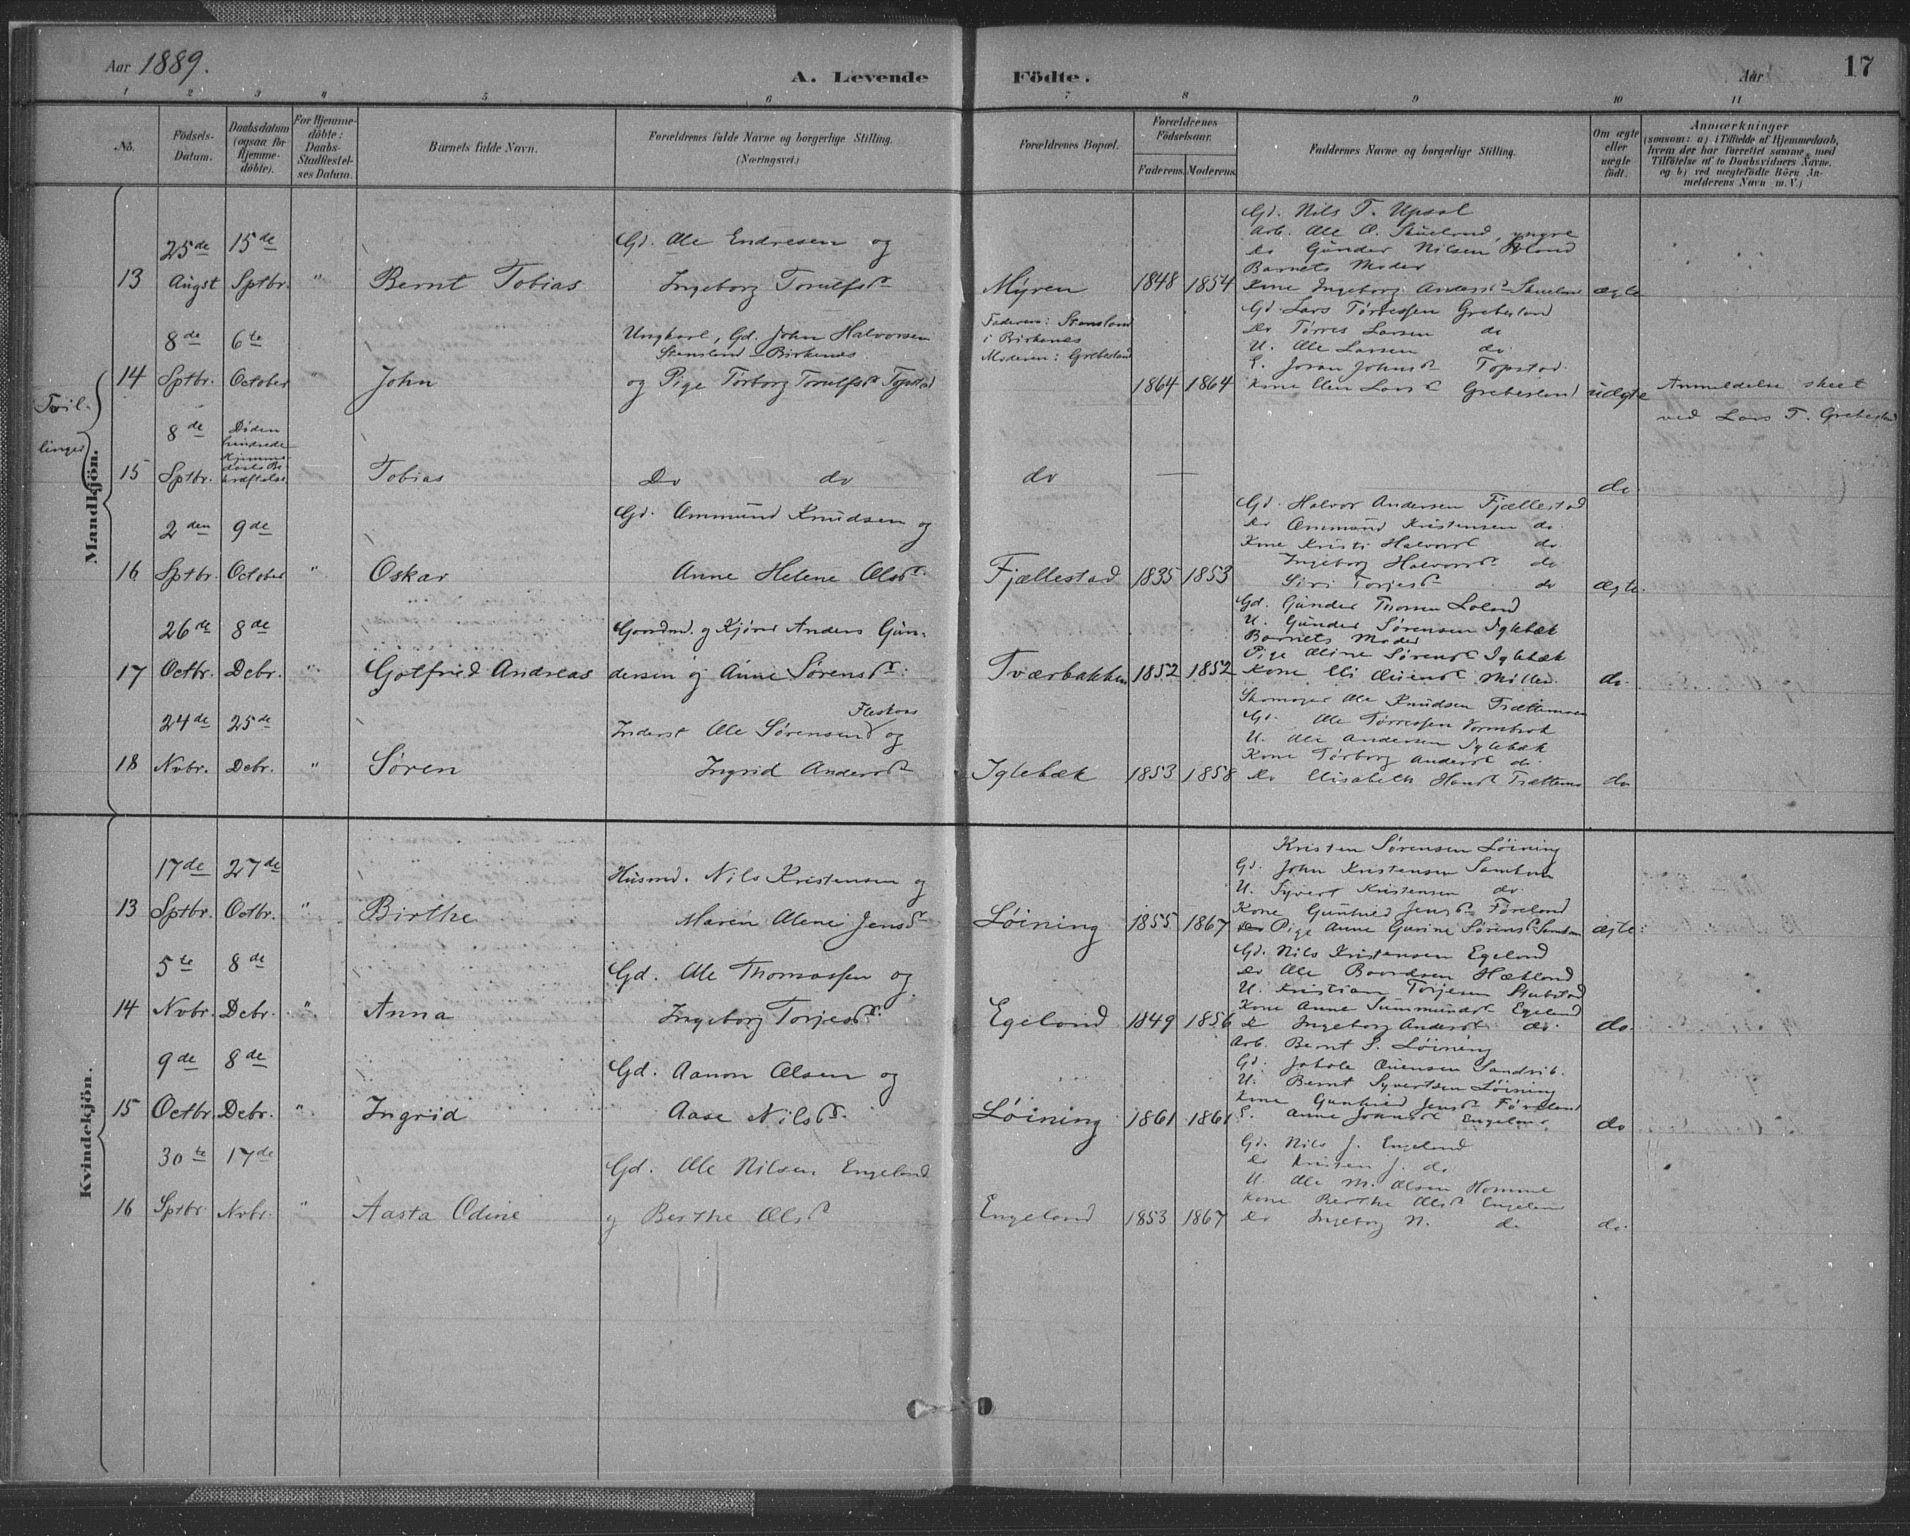 Aar 1889.
A. Levende Födte.
Aar
17
1 2 3 4 5 6 7 8 9 10 11
No.
Födsels-Datum.
Daabsdatum (ogsaa for Hjemme-döbte).
For Hjemme-döbte: Daabs-Stadfæstel-ses Datum.
Barnets fulde Navn.
Forældrenes fulde Navne og borgerlige Stilling.
(Næringsvei.)
Forældrenes Bopæl.
Forældrenes Födselsaar.
Faderens. Moderens.
Faddernes Navne og borgerlige Stilling.
Om ægte eller uægte födt.
Anmærkninger
(saasom: a) i Tilfælde af Hjemmedaab,
hvem der har forrettet samme, med
Tilföielse af to Daabsvidners Navne,
og b) ved uægtefödte Börn An-
melderens Navn m. V.)
Mandkjön.
13 25de Augst 15de Sptbr. " Bernt Tobias
Gd. Ole Endresen og
Ingeborg Torulfsd.
Myren 1848 1854
Gd. Nils T. Upsal
Arb. Ole O. Skueland, yngre
Do Gunder Nilsen
Barnets Moder
Kone Ingeborg Andersd. Skueland
ægte
Tvil-
linger
14 8de Sptbr. 6te October " John
Ungkarl, Gd. John Halvorsen
Stensland - Birkenes
og Pige Torborg Torulfsd. Topstad
Faderen: Stensland
i Birkenes
Moderen: Grebestad
1864 1864
Gd. Lars Tørresen Grebestad
Do Tørres Larsen do
U. Ole Larsen do.
E. Joran Johnsd. Topstad.
Kone Elen Larsd. Grebestad
uægte
Anmeldelse skeet
ved Lars T. Grebestad
15 8de Sptbr. Døden
hindrede
Hjemme-
daabs Be-
kræftelse
Tobias
Do do
do
do.
16 2den Sptbr. 9de October " Oskar
Gd. Ommund Knudsen og
Anne Helene Olsd.
Fjællestad 1835 1853
Gd. Halvor Andersen Fjællestad
Do Ommund Kristensen do.
Kone Kristi Halvorsd. do.
Ingeborg Halvorsd. do
Siri Torjesd. do
ægte.
17 26de Octbr. 8de Debr. " Gotfried Andreas
Gaardmd. og Kjører Anders Gun-
dersen og Anne Sørensd.
Tværbakken 1852 1852
Gd. Gunder Thorsen Loland
U. Gunder Sørensen Iglebæk
Barnets Moder
Pige Oline Sørensd. Iglebæk
Kone Eli
do.
18 24de Nvbr. 25de Debr. " Søren
Inderst Ole Sørensen Fleskaas og
Ingrid Andersd.
Iglebæk 1853 1858
Skomager Ole Knudsen
Gd. Ole Tørresen
U. Ole Andersen Iglebæk
Kone Torborg Andersd. do.
Do Elisabeth Hansd.
do
Kvindekjön.
13 17de Sptbr. 27de Octbr. " Birthe
Husmd. Nils Kristensen og
Maren Olene Jensd.
Løining 1855 1867
Kristen Sørensen Løining
Gd. John Kristensen
U. Syvert Kristensen do.
Kone Gunhild Jensd. Føreland
Pige Anne Gurine Sørensd.
ægte.
14 5te Nvbr. 8de Debr. " Anna
Gd. Ole Thomassen og
Ingeborg Torjesd.
Egeland 1849 1856
Gd. Nils Kristensen Egeland
Do Ole Baardsen
U. Kristian Torjesen Stubstad
Kone Anne Egeland
Ingeborg Andersd. do.
do.
15 9de Octbr. 8de Debr. " Ingrid
Gd. Aanon Olsen og
Aase Nilsd.
Løining 1861 1861
Arb. Bernt S. Løining
Gd. Sandvik.
U. Bernt Syvertsen Løining
Kone Gunhild Jensd. Føreland
E. Anne Johnsd. Engeland.
do
16 30te Sptbr. 17de Nvbr. " Aasta Odine
Gd. Ole Nilsen Engeland
og Berthe Olsd.
Engeland 1853 1867
Gd. Nils J. Engeland
Do Kristen J. do
U. Ole M. Olsen Homme
Kone Berthe Olsd. Engeland
Do Ingeborg N. do
do.